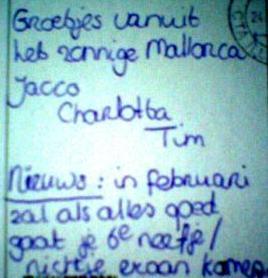 Groetjes vanuit
het zonnige Mallorca
Jacco
Charlotta
Tim
Nieuws: in februari
zal als alles goed
gaat je 6e neefje/
nichtje eraan komen